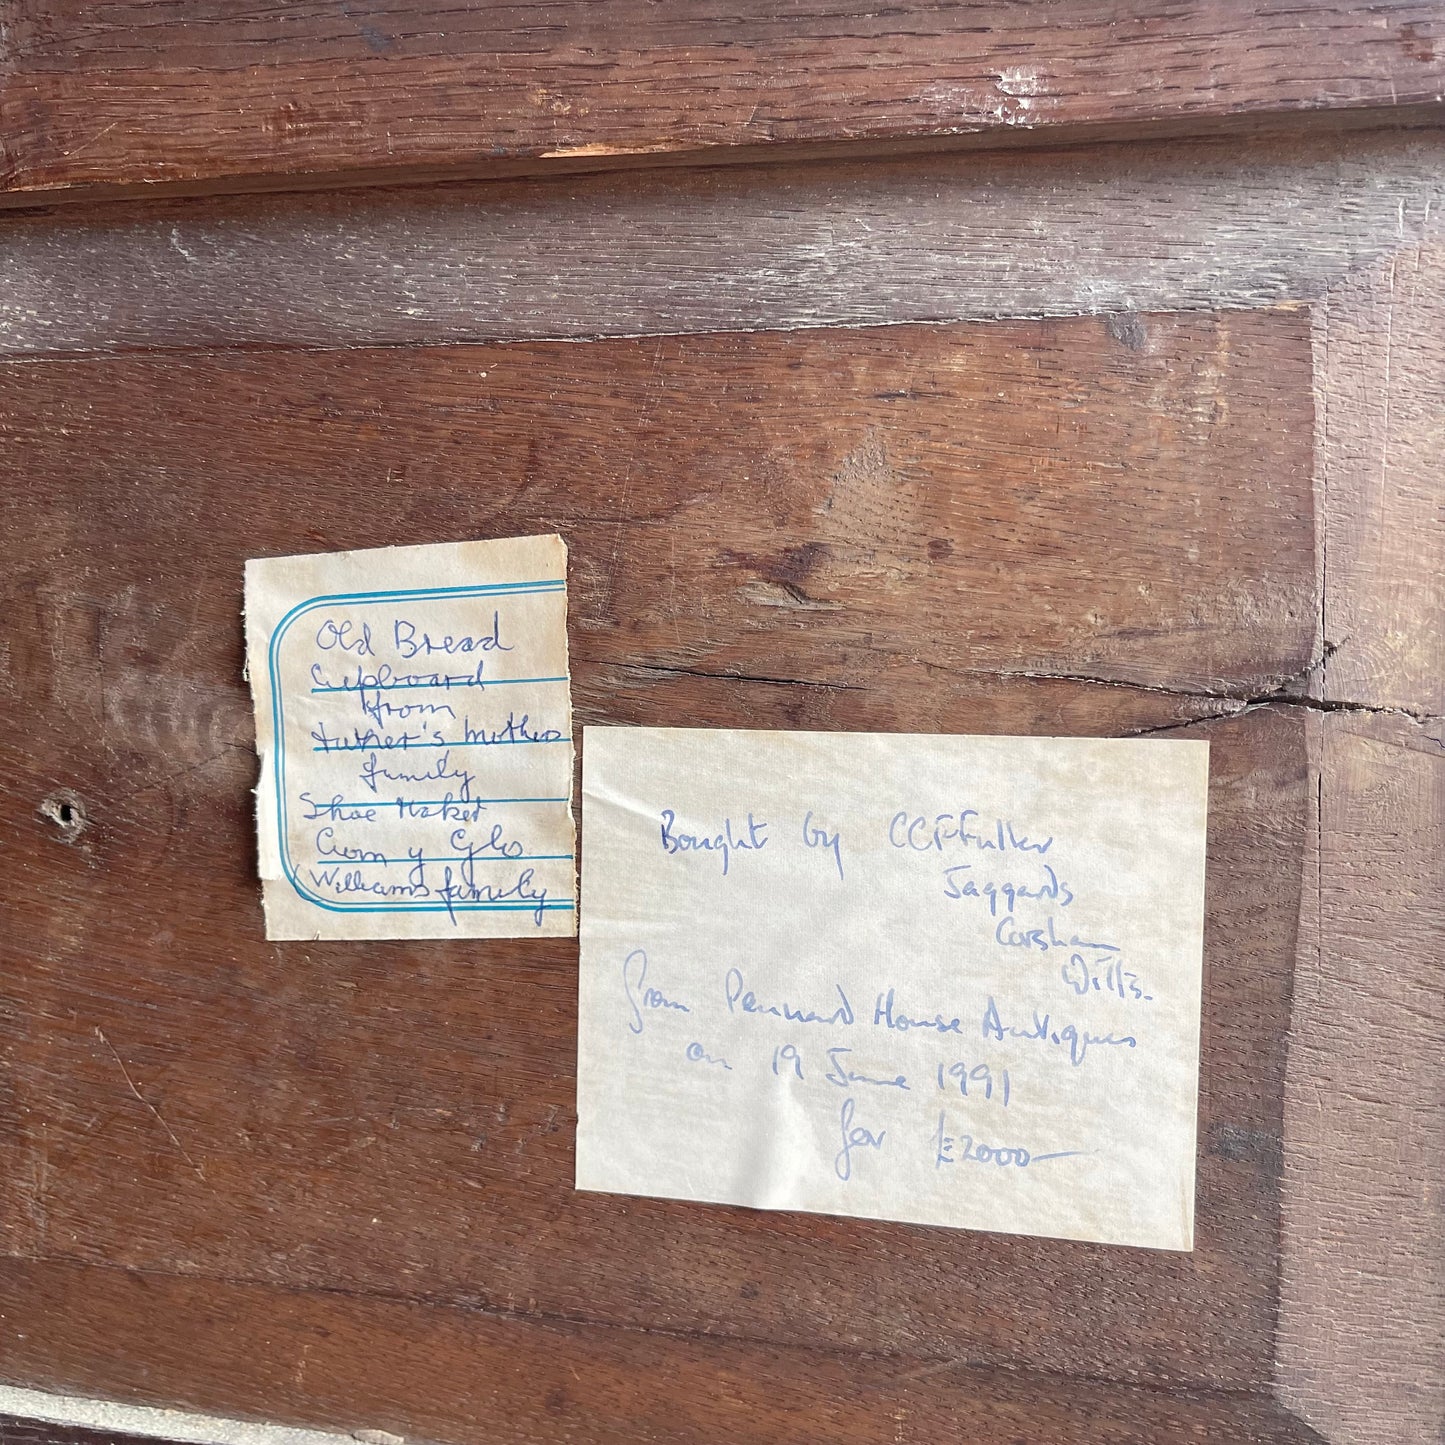 Old Bread
Cupboard
from
father's mothers
family
Shoe Maker
Cwm y Glo
Williams family
Bought by CCF Fuller
Jaggards
Corsham
Wilts.
from Pennard House Antiques
on 19 June 1991
for £2000—